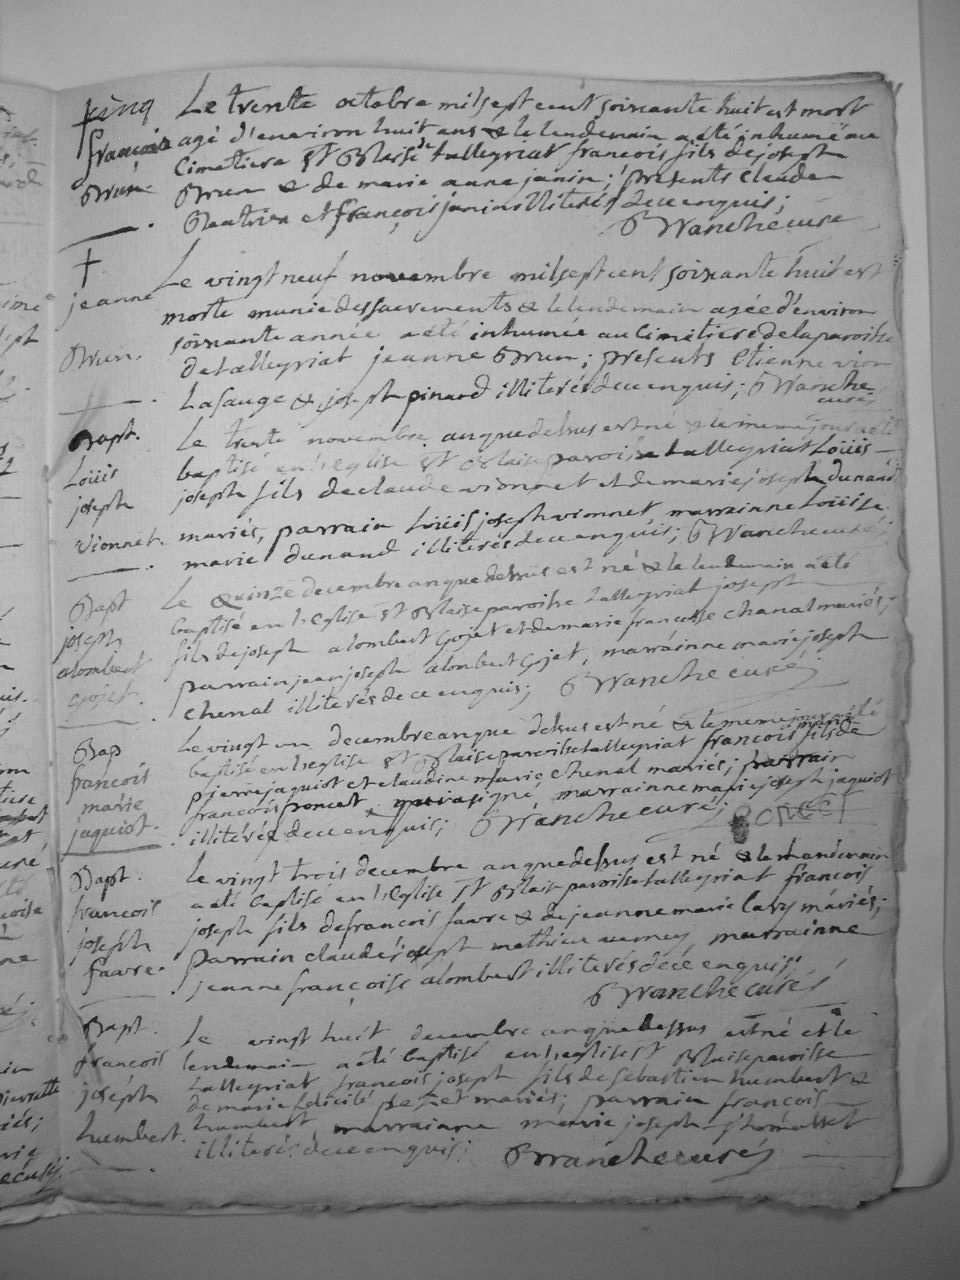 françois
Brun
Le trente octobre milsept cent soixante huit est mort
agé d'environ huit ans & le lendemain a été inhumé au
Cimetiere St Blaise de tallegriat françois fils de joseph
Brun & de marie anne janin; presents claude
et françois janin illiterés dece enquis;
Branche curé
†
jeanne
Brun.
Le vingt neuf novembre milsept cent soixante huit est
morte munie des sacrements & le lendemain agée d'environ
soixante année a été inhumée au Cimetiere de la paroisse
de tallegriat jeanne Brun; presents Etienne vion
Lasauge & joseph pinard illiterés dece enquis; Branche
curé
Bapt.
Loüis
joseph
vionnet.
Le trente novembre an que dessus est né & le meme jour a été
baptisé en l'eglise St Blaise paroisse tallegriat Loüis
joseph fils de claude vionnet et de marie joseph dunand
mariés, parrain Loüis joseph vionnet marrainne Loüise
marie dunand illiterés dece enquis; Branche curé
Bapt
joseph
alombert
gojet.
Le Quinze decembre an que dessus est né & le lendemain a été
baptisé en l'Eglise St Blaise paroisse tallegriat joseph
fils de joseph alombert gojet et de marie françoise chenal mariés;
parrain jean joseph alombert gojet, marrainne marie joseph
chenal illiterés dece enquis; Branche curé
Bap
francois
marie
jaquiot.
Le vingt un decembre an que dessus est né & le meme jour a été
baptisé en l'eglise St Blaise paroisse tallegriat françois fils de
pierre jaquiot et claudine marie chenal mariés; parrain
francois poncet signé, marrainne marie joseph jaquiot
illiterée dece enquis; Branche curé
PONCET
Bapt.
francois
joseph
favre.
Le vingt trois decembre an que dessus est né & le lendemain
a été baptisé en l'Eglise St Blaise paroisse tallegriat françois
joseph fils de francois favre & de jeanne marie lary mariés;
parrain claude josept mathieu marrainne
jeanne françoise alombert illiterés dece enquis;
Branche curé
Bapt.
francois
joseph
humbert.
Le vingt huit decembre an que dessus est né et le
lendemain a été baptisé en l'eglise St Blaise paroisse
tallegriat francois joseph fils de sebastien humbert &
de marie felicité mariés; parrain francois
humbert marrainne marie joseph thomasset
illiterés dece enquis; Branche curé